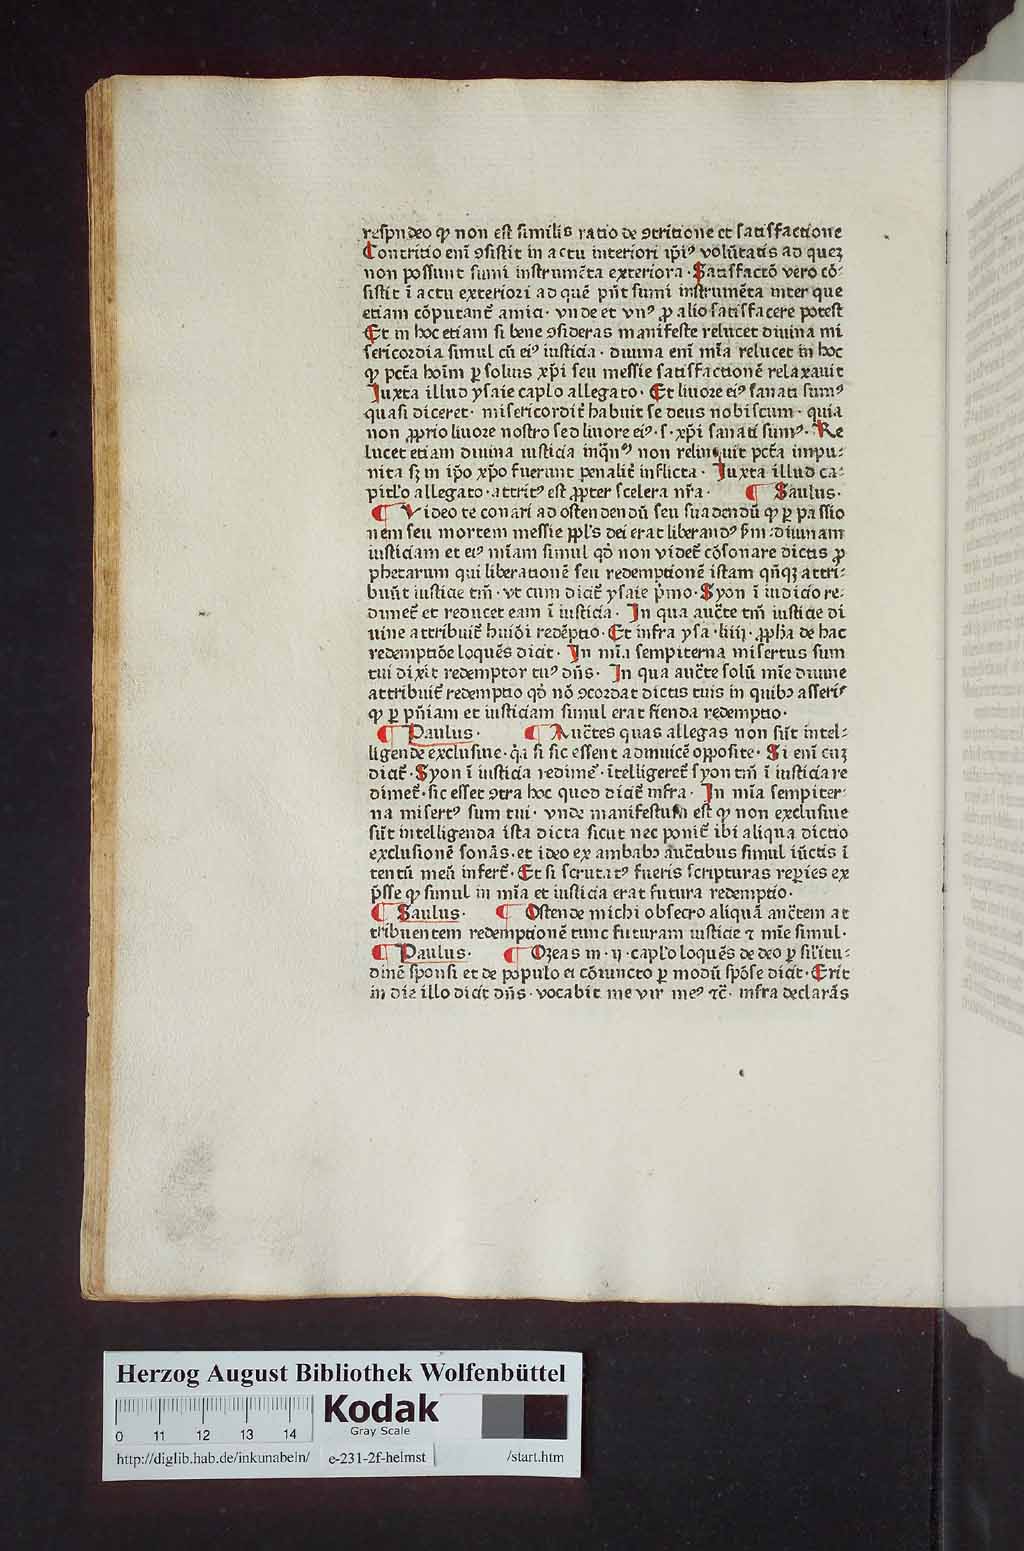 respndeo ꝙ non est similis ratio de ꝯtritione et satisfactione
Contritio eni̅ ꝯsistit in actu interiori ip̅iꝰ volu̅tatis ad queꝫ
non possunt sumi instrume̅ta exteriora · Satisfacto̅ vero co̅⸗
sistit i̅ actu exteriori ad que̅ pn̅t sumi instrume̅ta inter que
etiam co̅putant᷑ amici · vnde et vnꝰ ꝓ alio satisfacere potest
Et in hoc etiam si bene ꝯsideras manifeste relucet diuina mi
sericordia simul cu̅ eiꝰ iusticia · diuina eni̅ mi̅a relucet in hoc
ꝙ pct̅a hoi̅m ꝑ solius xp̅i seu messie satisfactione̅ relaxauit
Juxta illud ysaie caplo allegato · Et liuore eiꝰ sanati sumꝰ
quasi diceret · misericordit᷑ habuit se deus nobiscum · quia
non ꝓprio liuore nostro sed liuore eiꝰ · s · xp̅i sanati sumꝰ · Re
lucet etiam diuina iusticia inq̅nꝰ non relinquit pct̅a impu⸗
nita sꝫ in ip̅o xp̅o fuerunt penalit᷑ inflicta · Juxta illud ca⸗
pitl'o allegato · attritꝰ est ꝓpter scelera nr̅a · ¶ Saulus ·
¶ Video te conari ad ostendendu̅ seu suadendu̅ ꝙ ꝑ passio
nem seu mortem messie ppl's dei erat liberandꝰ ẜm : diuinam
iusticiam et eiꝰ mi̅am simul qd̅ non videt᷑ co̅sonare dictis ꝓ
phetarum qui liberatione̅ seu redemptione̅ istam qn̅qꝫ attri⸗
bun̅t iusticie tm̅ · vt cum dicit᷑ ysaie p̅mo · Syon i̅ iudicio re⸗
dimet᷑ et reducet eam i̅ iusticia · In qua auct̅e tm̅ iusticie di
uine attribuit᷑ hui̅oi rede̅ptio · Et infra ysa · liiij · ꝓph̅a de hac
redemptio̅e loque̅s dicit · In mi̅a sempiterna misertus sum
tui dixit redemptor tuꝰ dn̅s · In qua auct̅e solu̅ mi̅e diuine
attribuit᷑ redemptio qd̅ no̅ ꝯcordat dictis tuis in quibꝫ asseris
ꝙ ꝑ pn̅iam et iusticiam simul erat fienda redemptio ·
¶ Paulus · ¶ Auct̅es quas allegas non su̅t intel⸗
ligende exclusiue · q̅a si sic essent admuice̅ opposite · Si eni̅ cuꝫ
dicit᷑ · Syon i̅ iusticia redimet᷑ · i̅telligeret᷑ syon tm̅ i̅ iusticia re
dimet᷑ · sic esset ꝯtra hoc quod dicit᷑ infra · In mi̅a sempiter⸗
na misertꝰ sum tui · vnde manifestum est ꝙ non exclusiue
su̅t intelligenda ista dicta sicut nec ponit᷑ ibi aliqua dictio
exclusione̅ sona̅s · et ideo ex ambabꝫ auct̅ibus simul iu̅ctis i̅
tentu̅ meu̅ infert᷑ · Et si scrutatꝰ fueris scripturas reꝑies ex
p̅sse ꝙ simul in mi̅a et iusticia erat futura redemptio ·
¶ Saulus · ¶ Ostende michi obsecro aliqua̅ auct̅em at
tribuentem redemptione̅ tunc futuram iusticie ⁊ mi̅e simul ·
¶ Paulus · ¶ Ozeas in · ij · capl'o loque̅s de deo ꝑ sil'itu⸗
dine̅ sponsi et de populo ei co̅iuncto ꝑ modu̅ spo̅se dicit · Erit
in die illo dicit dn̅s · vocabit me vir meꝰ ⁊c̅ · infra declara̅s
Herzog August Bibliothek Wolfenbüttel
0 11 12 13 14
Kodak
Gray Scale
http://diglib.hab.de/inkunabeln/ e-231-2f-helmst /start.htm